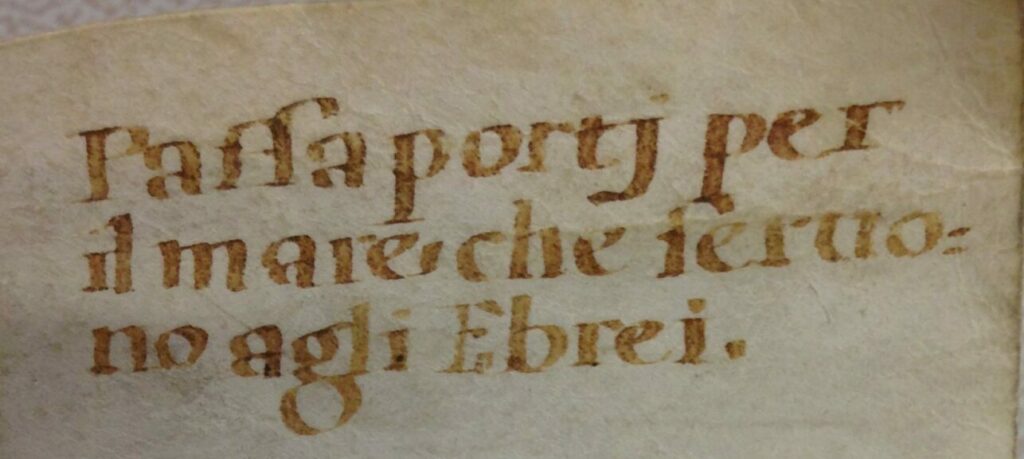 Paſſaportj per
il mare, che ſeruo=
no agli Ebrei.